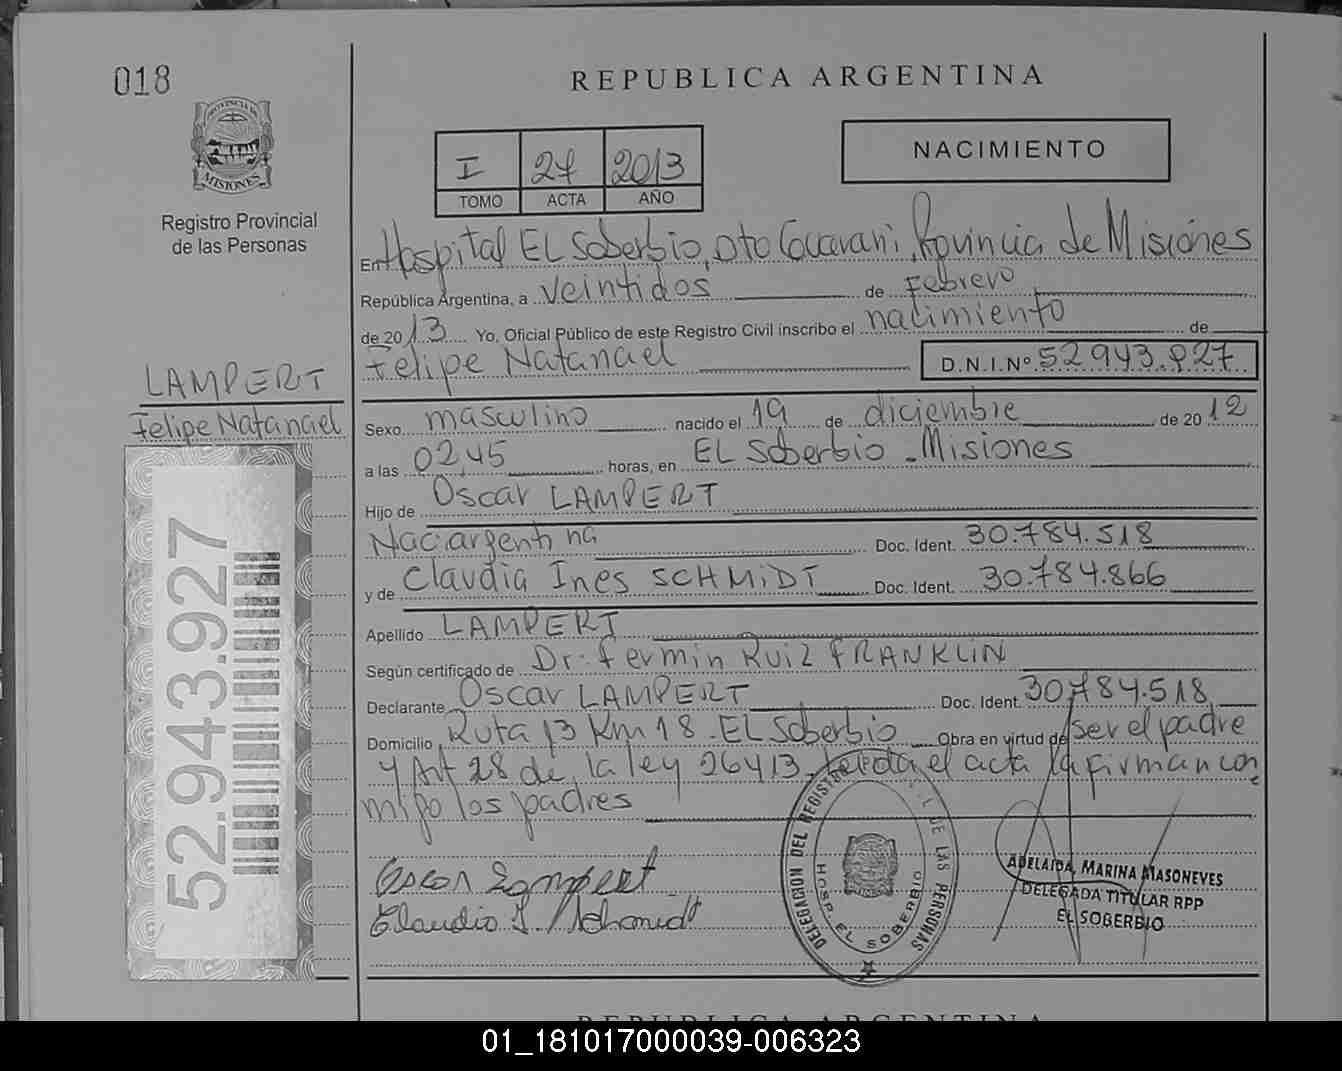 018
PROVINCIA DE
MISIONES
Registro Provincial
de las Personas
LAMPERT
Felipe Natanael
52.943.927
REPUBLICA ARGENTINA
I 27 2013
TOMO ACTA AÑO
NACIMIENTO
En Hospital EL Soberbio, Dto Guarani, Provincia de Misiones
República Argentina, a veintidos de Febrero
de 2013 Yo, Oficial Público de este Registro Civil inscribo el nacimiento de
Felipe Natanael D.N.I.Nº 52.943.927
Sexo masculino nacido el 19 de diciembre de 2012
a las 02,45 horas, en EL Soberbio - Misiones
Hijo de Oscar LAMPERT
Nac argentina Doc. Ident. 30.784.518
y de Claudia Ines SCHMIDT Doc. Ident. 30.784.866
Apellido LAMPERT
Según certificado de Dr: Fermin Ruiz FRANKLIN
Declarante Oscar LAMPERT Doc. Ident. 30.784.518
Domicilio Ruta 13 Km 18 - EL Soberbio Obra en virtud de ser el padre
y Art 28 de la ley 26413. Leida el acta la firman con
migo los padres
Oscar Lampert
Claudia I. Schmidt
DELEGACION DEL REGISTRO DE LAS PERSONAS
HOSP. EL SOBERBIO
ADELAIDA MARINA MASONEVES
DELEGADA TITULAR RPP
EL SOBERBIO
REPUBLICA ARGENTINA
01_181017000039-006323